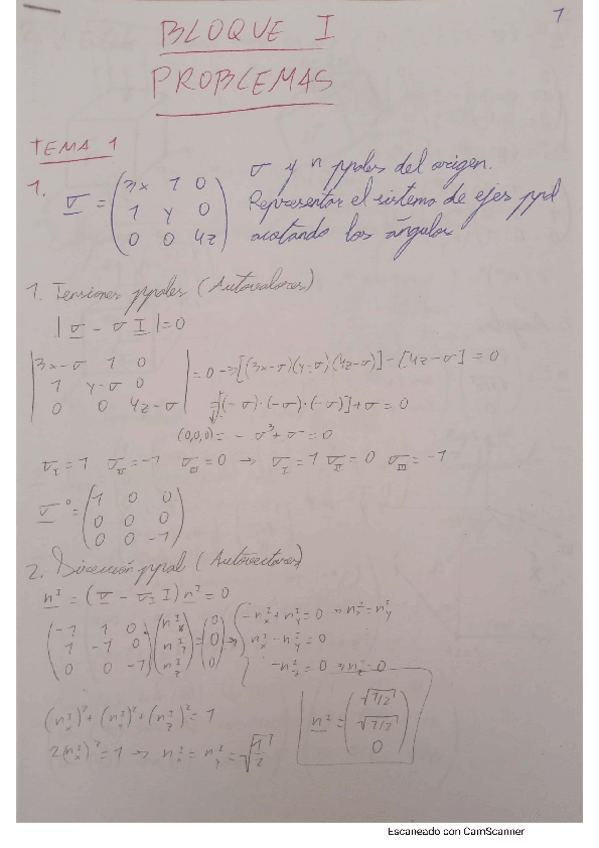 1
BLOQUE I
PROBLEMAS
TEMA 1
1. σ = (3x 1 0 / 1 y 0 / 0 0 4z) σ y n ppales del origen.
Representar el sistema de ejes ppal
acotando los ángulos
1. Tensiones ppales (Autovalores)
|σ - σ I| = 0
|3x-σ 1 0 / 1 y-σ 0 / 0 0 4z-σ| = 0 → [(3x-σ)(y-σ)(4z-σ)] - [4z-σ] = 0
[(-σ)·(-σ)·(-σ)] + σ = 0
(0,0,0) = -σ³ + σ = 0
σI = 1 σII = -1 σIII = 0 → σI = 1 σII = 0 σIII = -1
σ° = (1 0 0 / 0 0 0 / 0 0 -1)
2. Dirección ppal (Autovectores)
nᴵ = (σ - σI I) nᴵ = 0
(-1 1 0 / 1 -1 0 / 0 0 -1)·(nᴵx / nᴵy / nᴵz) = (0 / 0 / 0) → { -nᴵx + nᴵy = 0 → nᴵx = nᴵy
nᴵx - nᴵy = 0
-nᴵz = 0 → nᴵz = 0
(nᴵx)² + (nᴵy)² + (nᴵz)² = 1
2(nᴵx)² = 1 → nᴵx = nᴵy = √1/2
nᴵ = (√1/2 / √1/2 / 0)
Escaneado con CamScanner